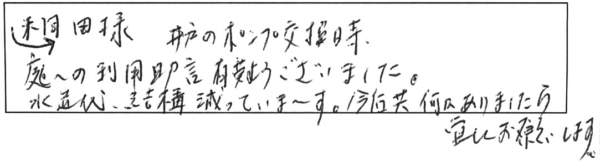 和田様 井戸のポンプ交換時、
庭への利用助言有難うございました。
水道代、結構減っていま〜す。今后共何かありましたら
宜しくお願いします